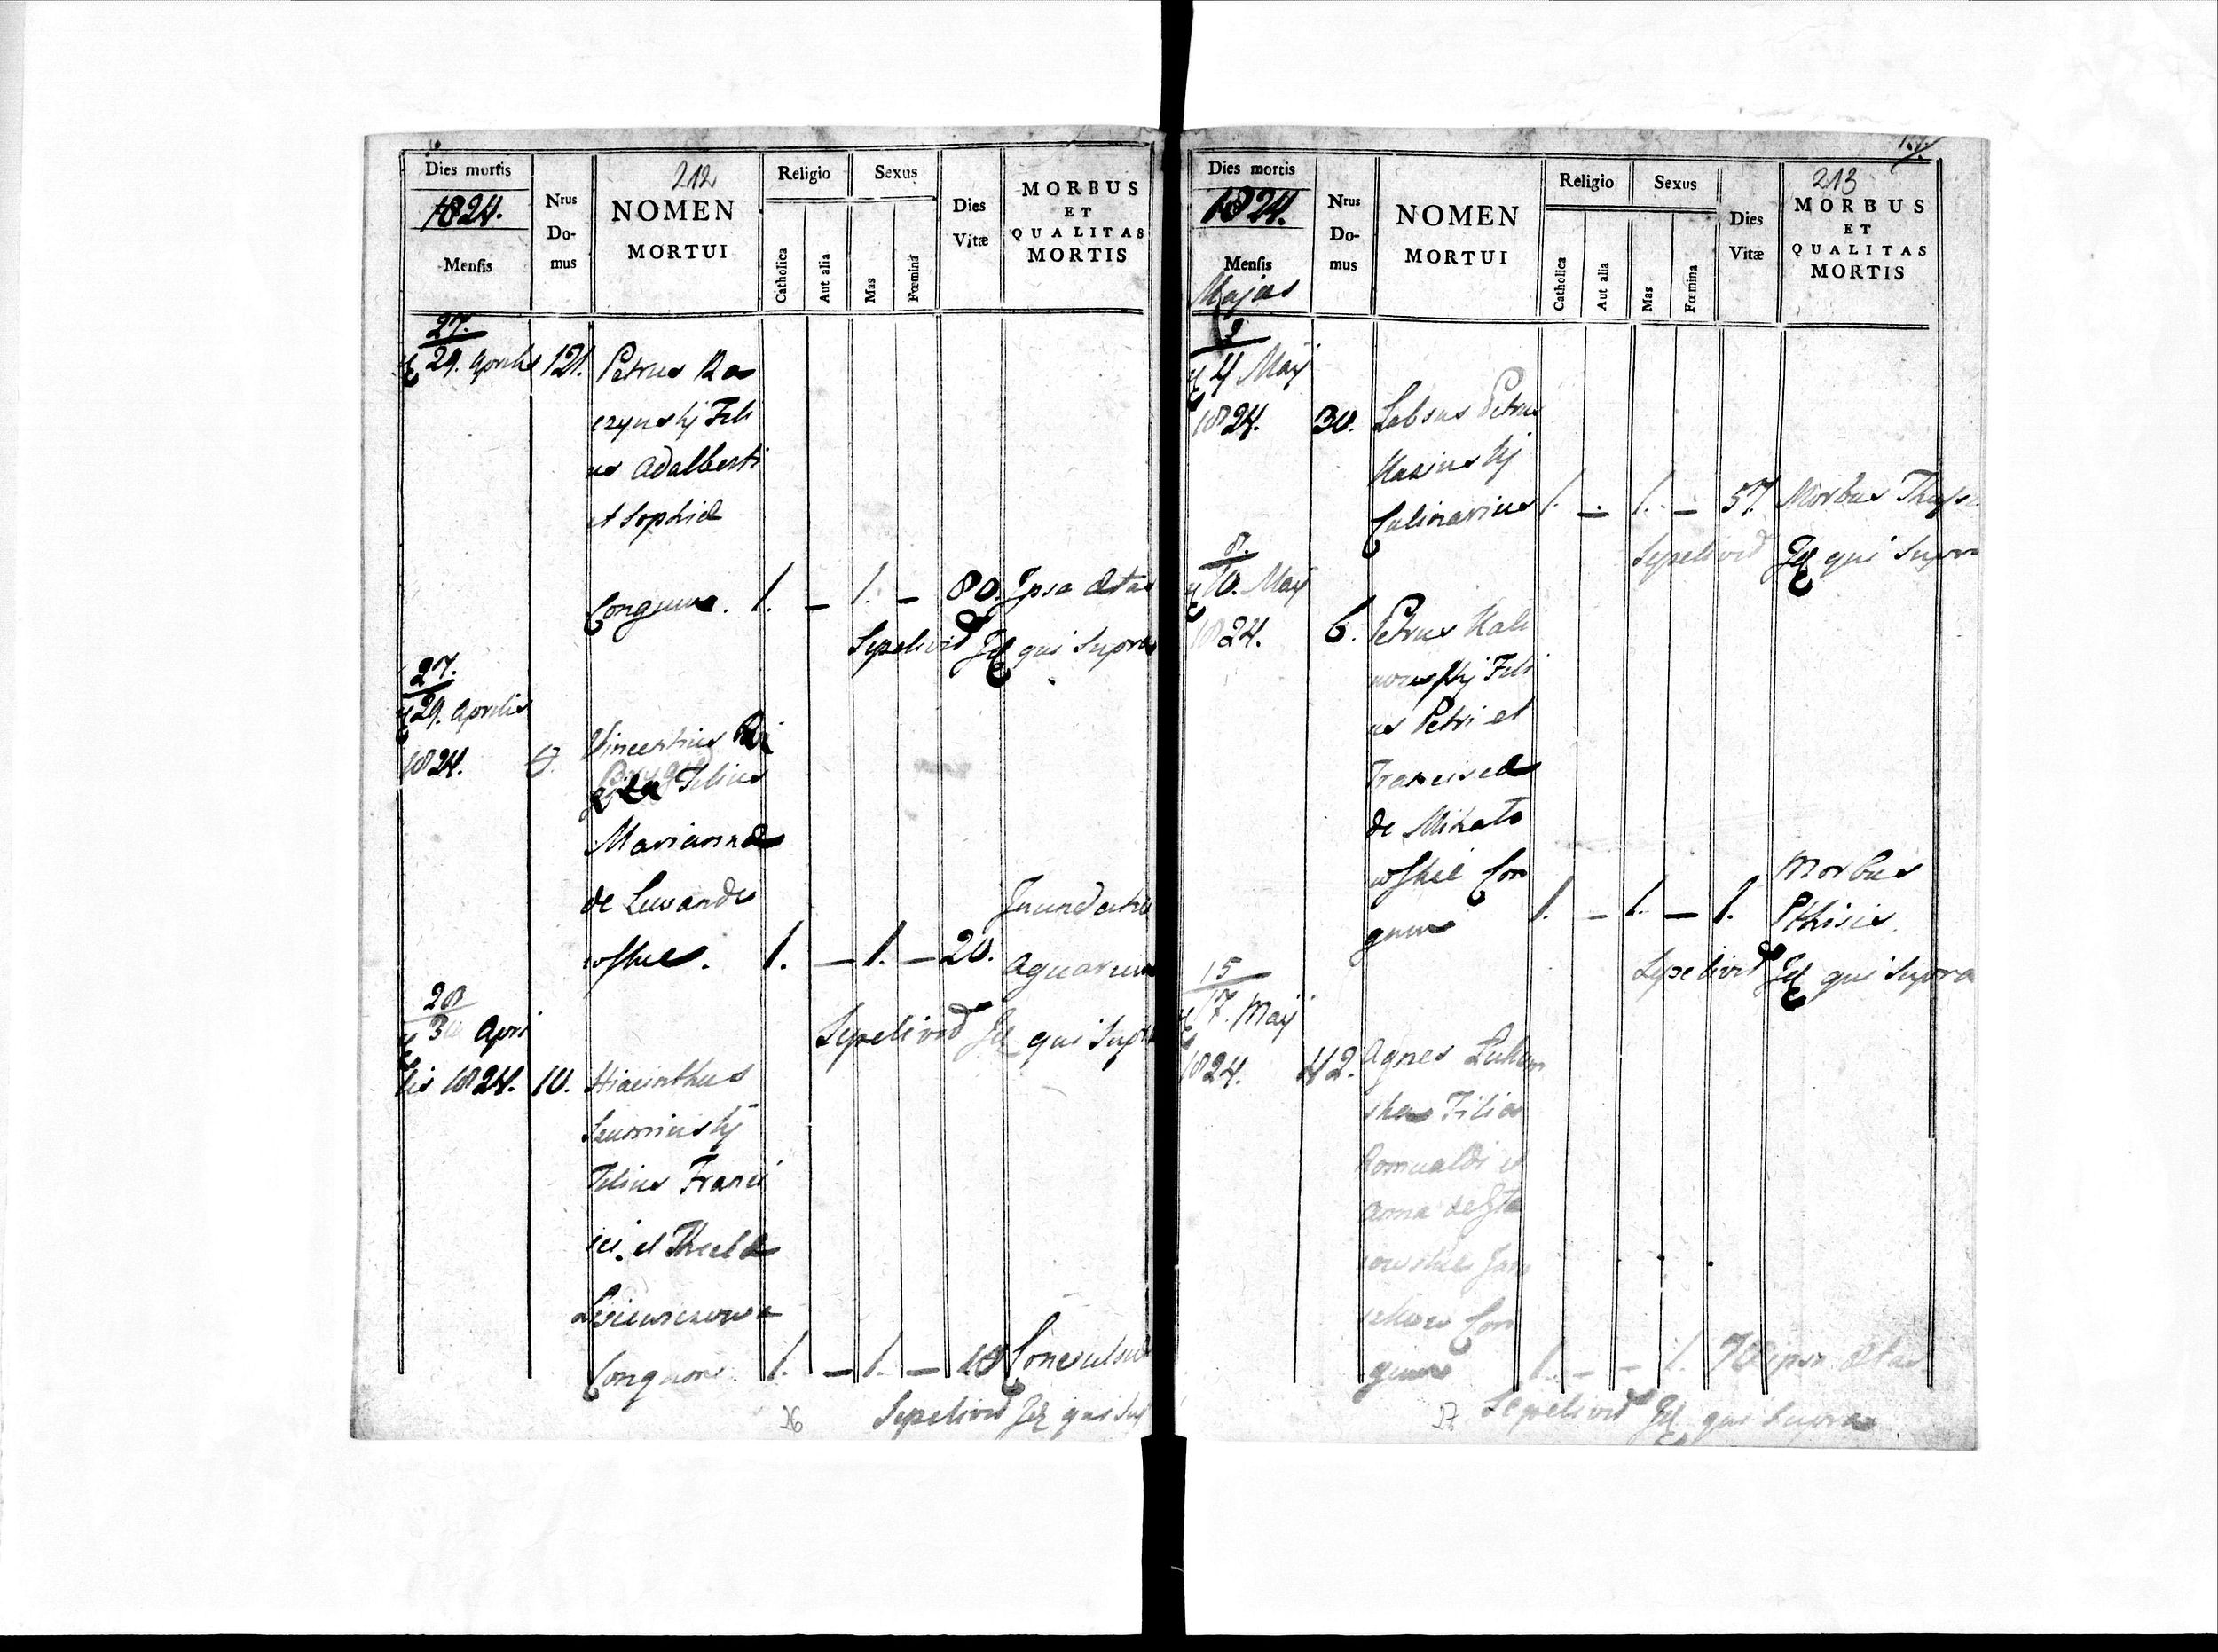 Dies mortis
1824.
Mensis
Nrus
Do-
mus
212
NOMEN
MORTUI
Religio
Catholica
Aut alia
Sexus
Mas
Fœmina
Dies
Vitæ
MORBUS
ET
QUALITAS
MORTIS
27.
29. Aprilis 121. Petrus Ra
czynskij Fili
us Adalberti
et Sophiæ
Conguna. 1. – 1. – 80. Ipsa ætas
Sepelivit Id qui Supra
27.
29. Aprilis
1824. Vincentius
Filius
Mariannæ
de Lewando
wskie. 1. – 1. – 20. Inundatio
Aquarum
Sepelivit Id qui Supra
28
Apri
lis 1824. 10. Hiacinthus
Szuminskij
Filius Franci
sci et Theclæ
1. – 1. – 10 Convulsio
Sepelivit Id qui Sup
26
Dies mortis
1824.
Mensis
Majus
Nrus
Do-
mus
NOMEN
MORTUI
Religio
Catholica
Aut alia
Sexus
Mas
Fœmina
Dies
Vitæ
213
MORBUS
ET
QUALITAS
MORTIS
2
4 Maij
1824. 30. Petrus
Kasinskij
Culinarius 1. – 1. – 57. Morbus
Sepelivit Id qui Supra
8.
10. Maij
1824. 6. Petrus Kali
nowskij Fili
us Petri et
Franciscæ
de Mikato
wskie Con
guna 1. – 1. – 1. Morbus
Pthisis.
Sepelivit Id qui Supra
15
17. Maij
1824. 42. Agnes
ska Filia
Romualdi et
Anna
Con
guna 1. – – 1. 70 ipsa ætas
Sepelivit Id qui Supra
27